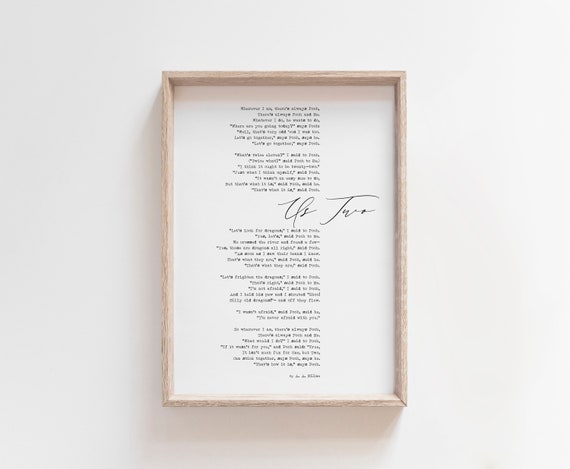 Wherever I am, there's always Pooh,
There's always Pooh and Me.
Whatever I do, he wants to do,
"Where are you going today?" says Pooh:
"Well, that's very odd 'cos I was too.
Let's go together," says Pooh, says he.
"Let's go together," says Pooh.
"What's twice eleven?" I said to Pooh.
("Twice what?" said Pooh to Me.)
"I think it ought to be twenty-two."
"Just what I think myself," said Pooh.
"It wasn't an easy sum to do,
But that's what it is," said Pooh, said he.
"That's what it is," said Pooh.
Us Two
"Let's look for dragons," I said to Pooh.
"Yes, let's," said Pooh to Me.
We crossed the river and found a few-
"Yes, those are dragons all right," said Pooh.
"As soon as I saw their beaks I knew.
That's what they are," said Pooh, said he.
"That's what they are," said Pooh.
"Let's frighten the dragons," I said to Pooh.
"That's right," said Pooh to Me.
"I'm not afraid," I said to Pooh,
And I held his paw and I shouted "Shoo!
Silly old dragons!"- and off they flew.
"I wasn't afraid," said Pooh, said he,
"I'm never afraid with you."
So wherever I am, there's always Pooh,
There's always Pooh and Me.
"What would I do?" I said to Pooh,
"If it wasn't for you," and Pooh said: "True,
It isn't much fun for One, but Two,
Can stick together, says Pooh, says he.
"That's how it is," says Pooh.
by A. A. Milne